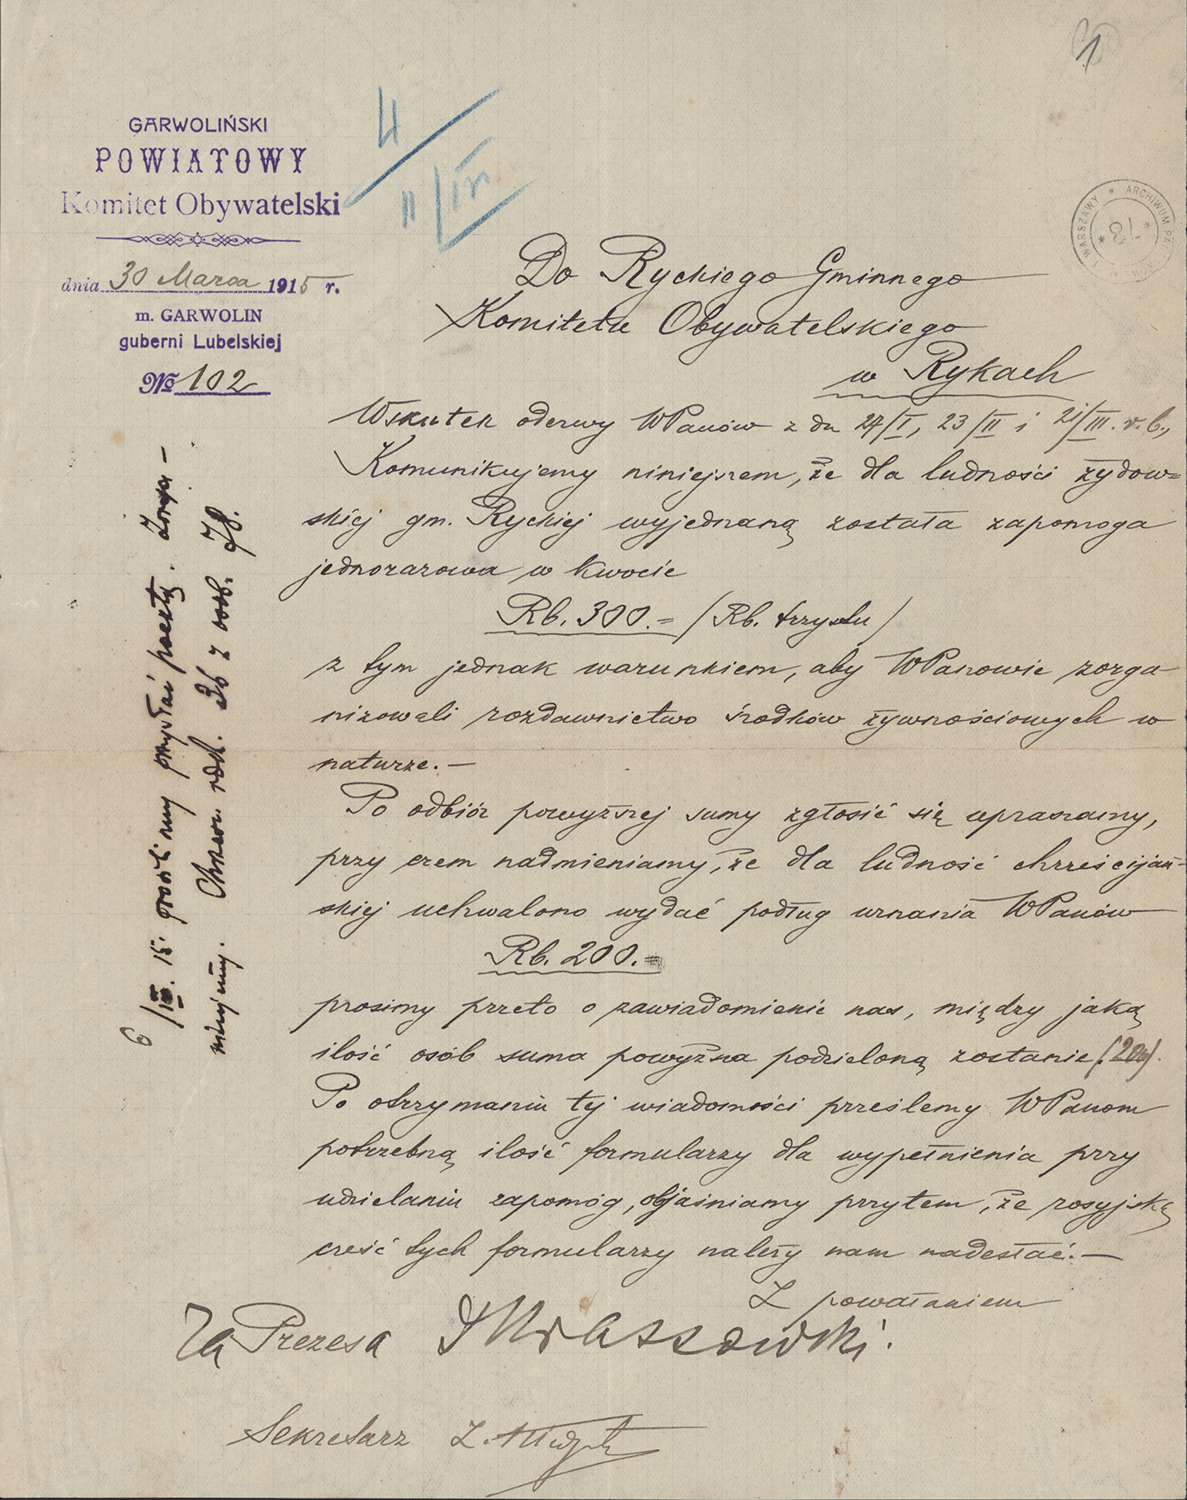 1
GARWOLIŃSKI
POWIATOWY
Komitet Obywatelski
dnia 30 Marca 1915 r.
m. GARWOLIN
guberni Lubelskiej
№ 102
4
11/IV
WARSZAWY * ARCHIWUM
* 78 *
Do Ryckiego Gminnego
Komitetu Obywatelskiego
w Rykach
Wskutek odezwy WPanów z dn 27/I, 23/II i 21/III. r. b.,
Komunikujemy niniejszem, że dla ludności żydow=
skiej gm. Ryckiej wyjednaną została zapomoga
jednorazowa w kwocie
Rb. 300.= /Rb. trzysta/
z tym jednak warunkiem, aby WPanowie zorga
nizowali rozdawnictwo środków żywnościowych w
naturze.—
Po odbiór powyższej sumy zgłosić się upraszamy,
przy czem nadmieniamy, że dla ludność chrześcijań-
skiej uchwalono wydać podług uznania WPanów
Rb. 200.=
prosimy przeto o zawiadomienie nas, między jaką
ilość osób suma powyższa podzieloną zostanie
Po otrzymaniu tej wiadomości prześlemy WPanom
potrzebną ilość formularzy dla wypełnienia przy
udzielaniu zapomóg, objaśniamy przytem, że rosyjską
cześć tych formularzy należy nam nadesłać.—
Z poważaniem
Za Prezesa
Sekretarz
6/IV. 15. prosili my przysłać pocztą.